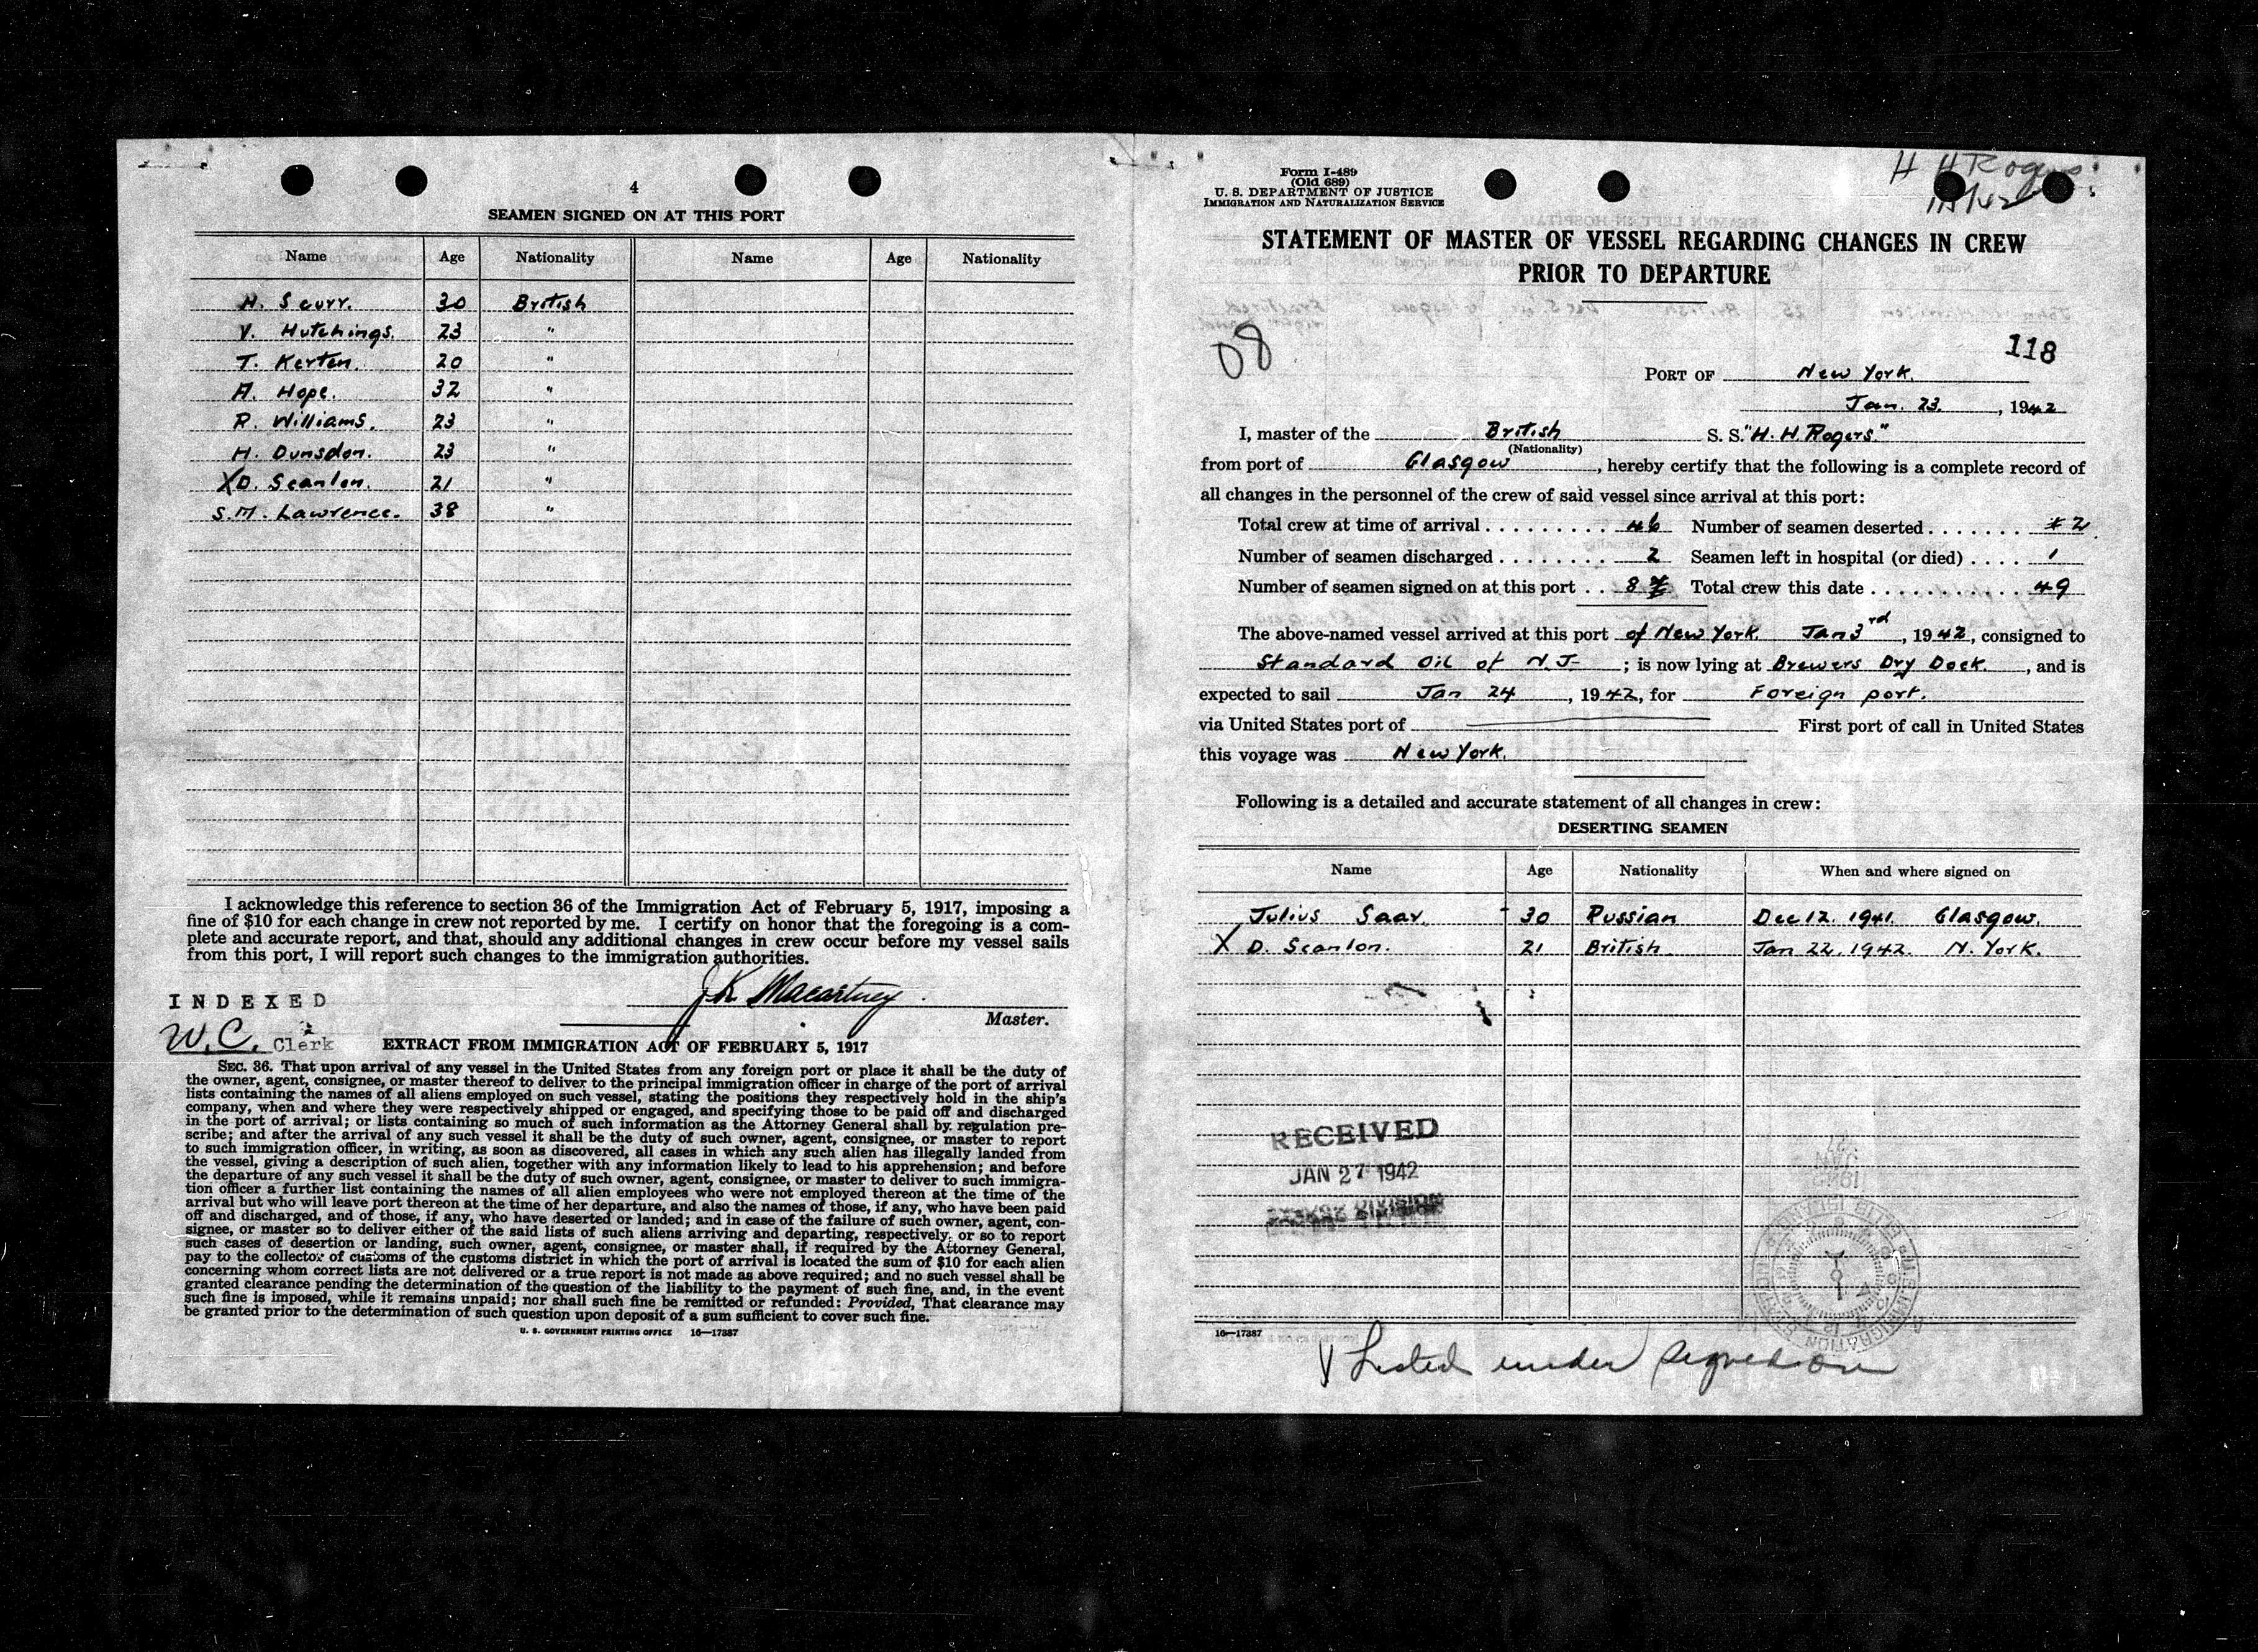 4
SEAMEN SIGNED ON AT THIS PORT
Name Age Nationality Name Age Nationality
H. Scurr. 30 British
V. Hutchings. 23 "
T. Kerten. 20 "
A. Hope. 32 "
R. Williams. 23 "
H. Dunsdon. 23 "
X D. Scanlon. 21 "
S.M. Lawrence. 38 "
I acknowledge this reference to section 36 of the Immigration Act of February 5, 1917, imposing a
fine of $10 for each change in crew not reported by me. I certify on honor that the foregoing is a com-
plete and accurate report, and that, should any additional changes in crew occur before my vessel sails
from this port, I will report such changes to the immigration authorities.
INDEXED
J K Macartney
Master.
W.C. Clerk
EXTRACT FROM IMMIGRATION ACT OF FEBRUARY 5, 1917
SEC. 36. That upon arrival of any vessel in the United States from any foreign port or place it shall be the duty of
the owner, agent, consignee, or master thereof to deliver to the principal immigration officer in charge of the port of arrival
lists containing the names of all aliens employed on such vessel, stating the positions they respectively hold in the ship's
company, when and where they were respectively shipped or engaged, and specifying those to be paid off and discharged
in the port of arrival; or lists containing so much of such information as the Attorney General shall by regulation pre-
scribe; and after the arrival of any such vessel it shall be the duty of such owner, agent, consignee, or master to report
to such immigration officer, in writing, as soon as discovered, all cases in which any such alien has illegally landed from
the vessel, giving a description of such alien, together with any information likely to lead to his apprehension; and before
the departure of any such vessel it shall be the duty of such owner, agent, consignee, or master to deliver to such immigra-
tion officer a further list containing the names of all alien employees who were not employed thereon at the time of the
arrival but who will leave port thereon at the time of her departure, and also the names of those, if any, who have been paid
off and discharged, and of those, if any, who have deserted or landed; and in case of the failure of such owner, agent, con-
signee, or master so to deliver either of the said lists of such aliens arriving and departing, respectively, or so to report
such cases of desertion or landing, such owner, agent, consignee, or master shall, if required by the Attorney General,
pay to the collector of customs of the customs district in which the port of arrival is located the sum of $10 for each alien
concerning whom correct lists are not delivered or a true report is not made as above required; and no such vessel shall be
granted clearance pending the determination of the question of the liability to the payment of such fine, and, in the event
such fine is imposed, while it remains unpaid; nor shall such fine be remitted or refunded: Provided, That clearance may
be granted prior to the determination of such question upon deposit of a sum sufficient to cover such fine.
U. S. GOVERNMENT PRINTING OFFICE 16—17387
Form I-489
(Old 689)
U. S. DEPARTMENT OF JUSTICE
IMMIGRATION AND NATURALIZATION SERVICE
H H Rogers
STATEMENT OF MASTER OF VESSEL REGARDING CHANGES IN CREW
PRIOR TO DEPARTURE
08
118
PORT OF New York.
Jan. 23, 1942
I, master of the British S. S. "H. H. Rogers."
(Nationality)
from port of Glasgow, hereby certify that the following is a complete record of
all changes in the personnel of the crew of said vessel since arrival at this port:
Total crew at time of arrival . . . . . . . . . . 46 Number of seamen deserted . . . . . . . 2
Number of seamen discharged . . . . . . . . 2 Seamen left in hospital (or died) . . . . 1
Number of seamen signed on at this port . . 8 Total crew this date . . . . . . . . . . . . 49
The above-named vessel arrived at this port of New York. Jan 3rd, 1942, consigned to
Standard Oil of N.J. ; is now lying at Brewers Dry Dock., and is
expected to sail Jan 24, 1942, for Foreign port.
via United States port of First port of call in United States
this voyage was New York.
Following is a detailed and accurate statement of all changes in crew:
DESERTING SEAMEN
Name Age Nationality When and where signed on
Julius Saar. 30 Russian Dec 12. 1941. Glasgow.
X D. Scanlon. 21 British Jan 22. 1942. N. York.
RECEIVED
JAN 27 1942
DIVISION
16—17387
Listed under signed on